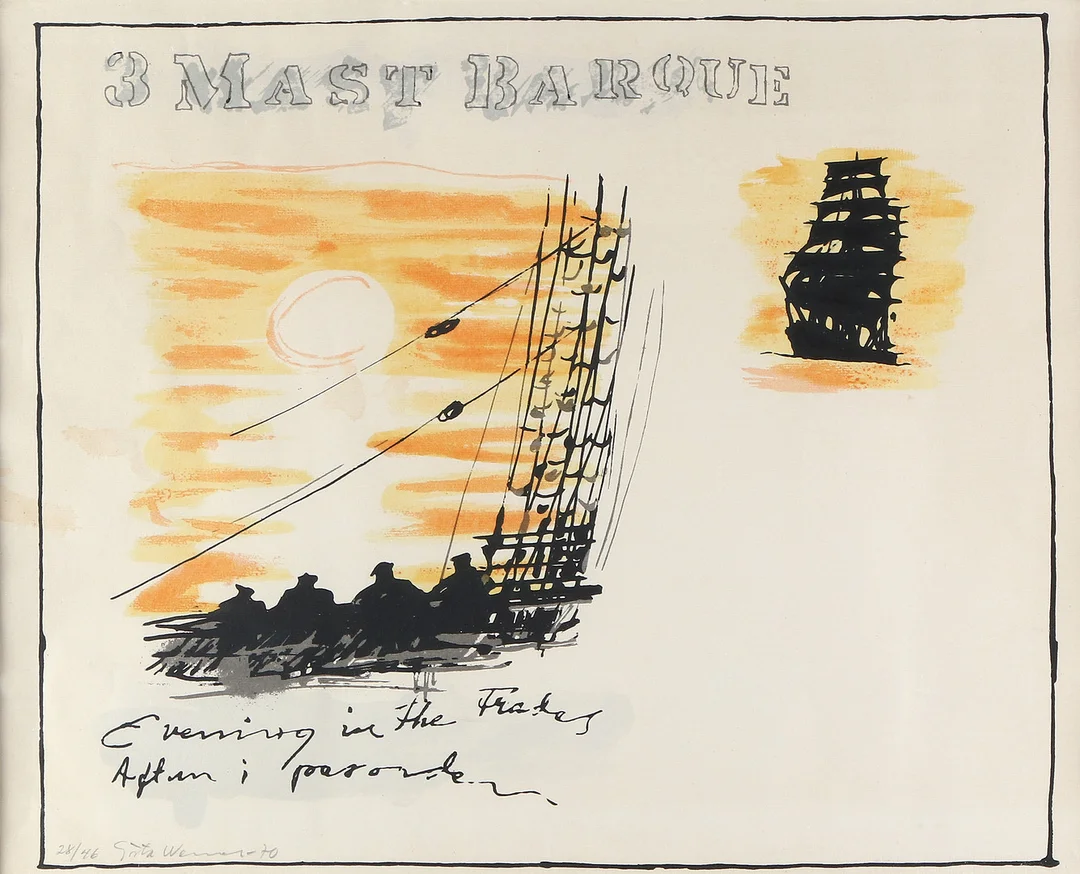 3 MAST BARQUE
Evening in the Trades
Afton i passaden
28/46 Gösta Werner -70